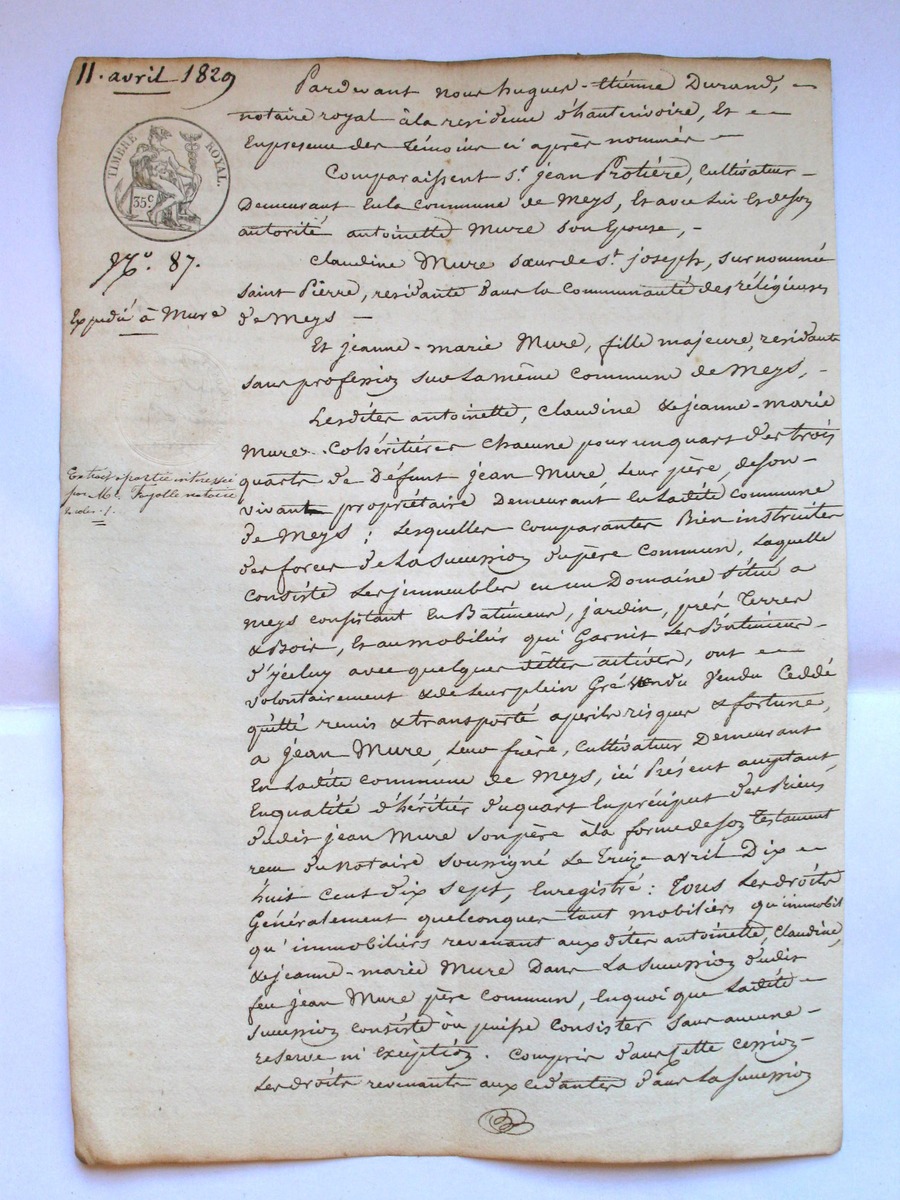 11. avril 1829
TIMBRE ROYAL.
35 c
N.o 87.
Expedié à Mure
Extrait partie intéressée
par Me. Fayolle notaire
Pardevant nous hugues-étienne Durand,
notaire royal à la residence d'hauterivoire, Et
En presence des témoins ci après nommés
Comparaissent Sr. jean Protière, Cultivateur
Demeurant En la Commune de Meys, Et avec lui Et de son
autorité antoinette Mure son Epouse,
Claudine Mure sœur de St. joseph, surnommée
saint Pierre, residante dans la Communauté des réligieuses
de Meys
Et jeanne-marie Mure, fille majeure, residante
sans profession sur la même commune de Meys,
Lesdites antoinette, Claudine & jeanne-marie
Mure Cohéritières chacune pour un quart des trois
quarts de Défunt jean Mure, leur père, de son
vivant propriétaire Demeurant En ladite commune
de Meys ; Lesquelles comparantes Bien instruites
des forces de la succession du père commun, Laquelle
consiste Les jmmeubles en un Domaine situé a
meys consistant En Batimens, jardin, prés, Terres
& Bois, Et au mobiliés qui Garnit Les Batimens
d'jceluy avec quelques dettes actives, ont
volontairement & de leur plein Gré vendu Ceddé
quitté remis & transporté a perils risques & fortune,
a jean Mure, leur frère, Cultivateur Demeurant
En Ladite commune de Meys, ici Présent acceptant
En qualité d'héritier du quart En préciput des Biens
dudit jean Mure son père à la forme de son Testament
recu du Notaire soussigné Le treize avril Dix
huit cent dix sept, Enregistré : Tous Les droits
Généralement quelconques tant mobiliers qu'immobil
qu'immobiliers revenant aux dites antoinette, Claudine,
& jeanne-marie Mure Dans La succession dudit
feu jean Mure père commun, En quoi que Ladite
succession consiste ou puisse consister sans aucune
reserve ni Exception. Compris dans Cette cession
Les droits revenants aux cedantes dans La succession